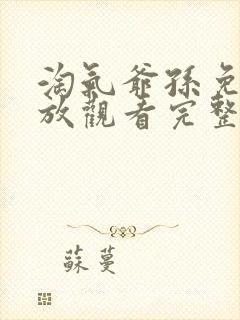 淘氣爺孫免
放觀看完整
蘇蔓